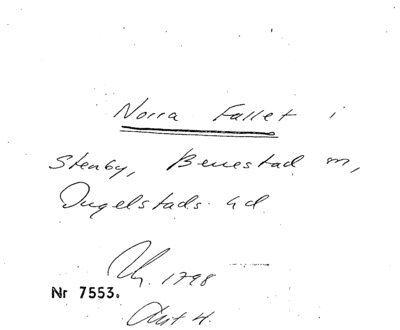 Norra Fallet i
Stenby, Benestad m,
Ingelstads hd
1798
Nr 7553.
Akt 4.